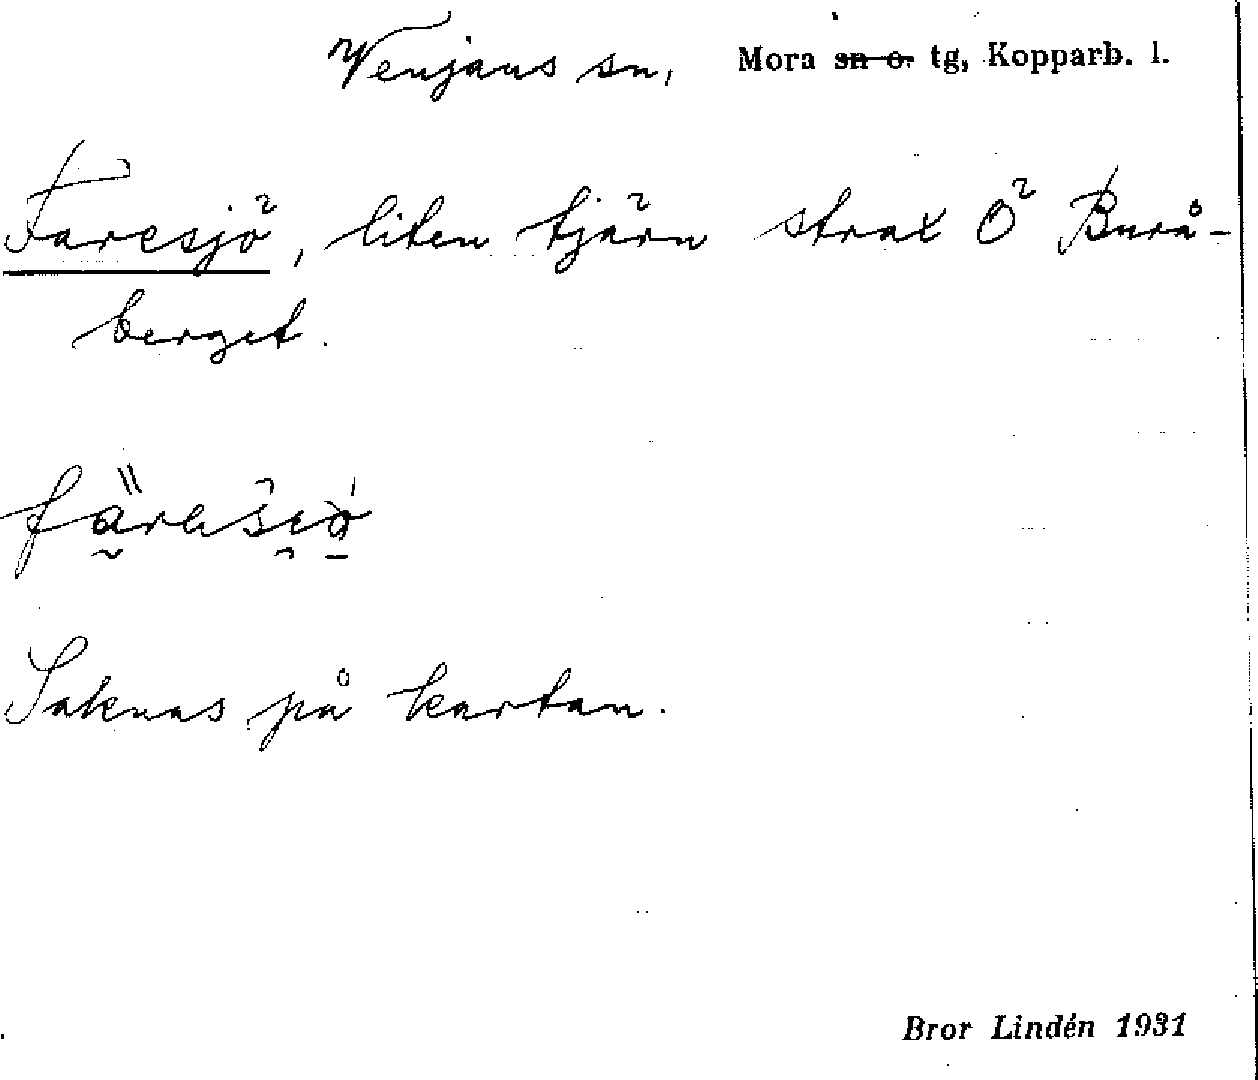 Venjans sn, Mora sn o. tg, Kopparb. l.
Faresjö, liten tjärn strax Ö Burå-
berget.
Saknas på kartan.
Bror Lindén 1931